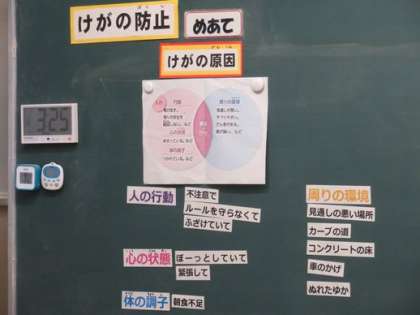 けがの防止
めあて
けがの原因
3:25
人の行動
不注意で
ルールを守らなくて
ふざけていて
心の状態
ぼーっとしていて
緊張して
体の調子
朝食不足
周りの環境
見通しの悪い場所
カーブの道
コンクリートの床
車のかげ
ぬれたゆか